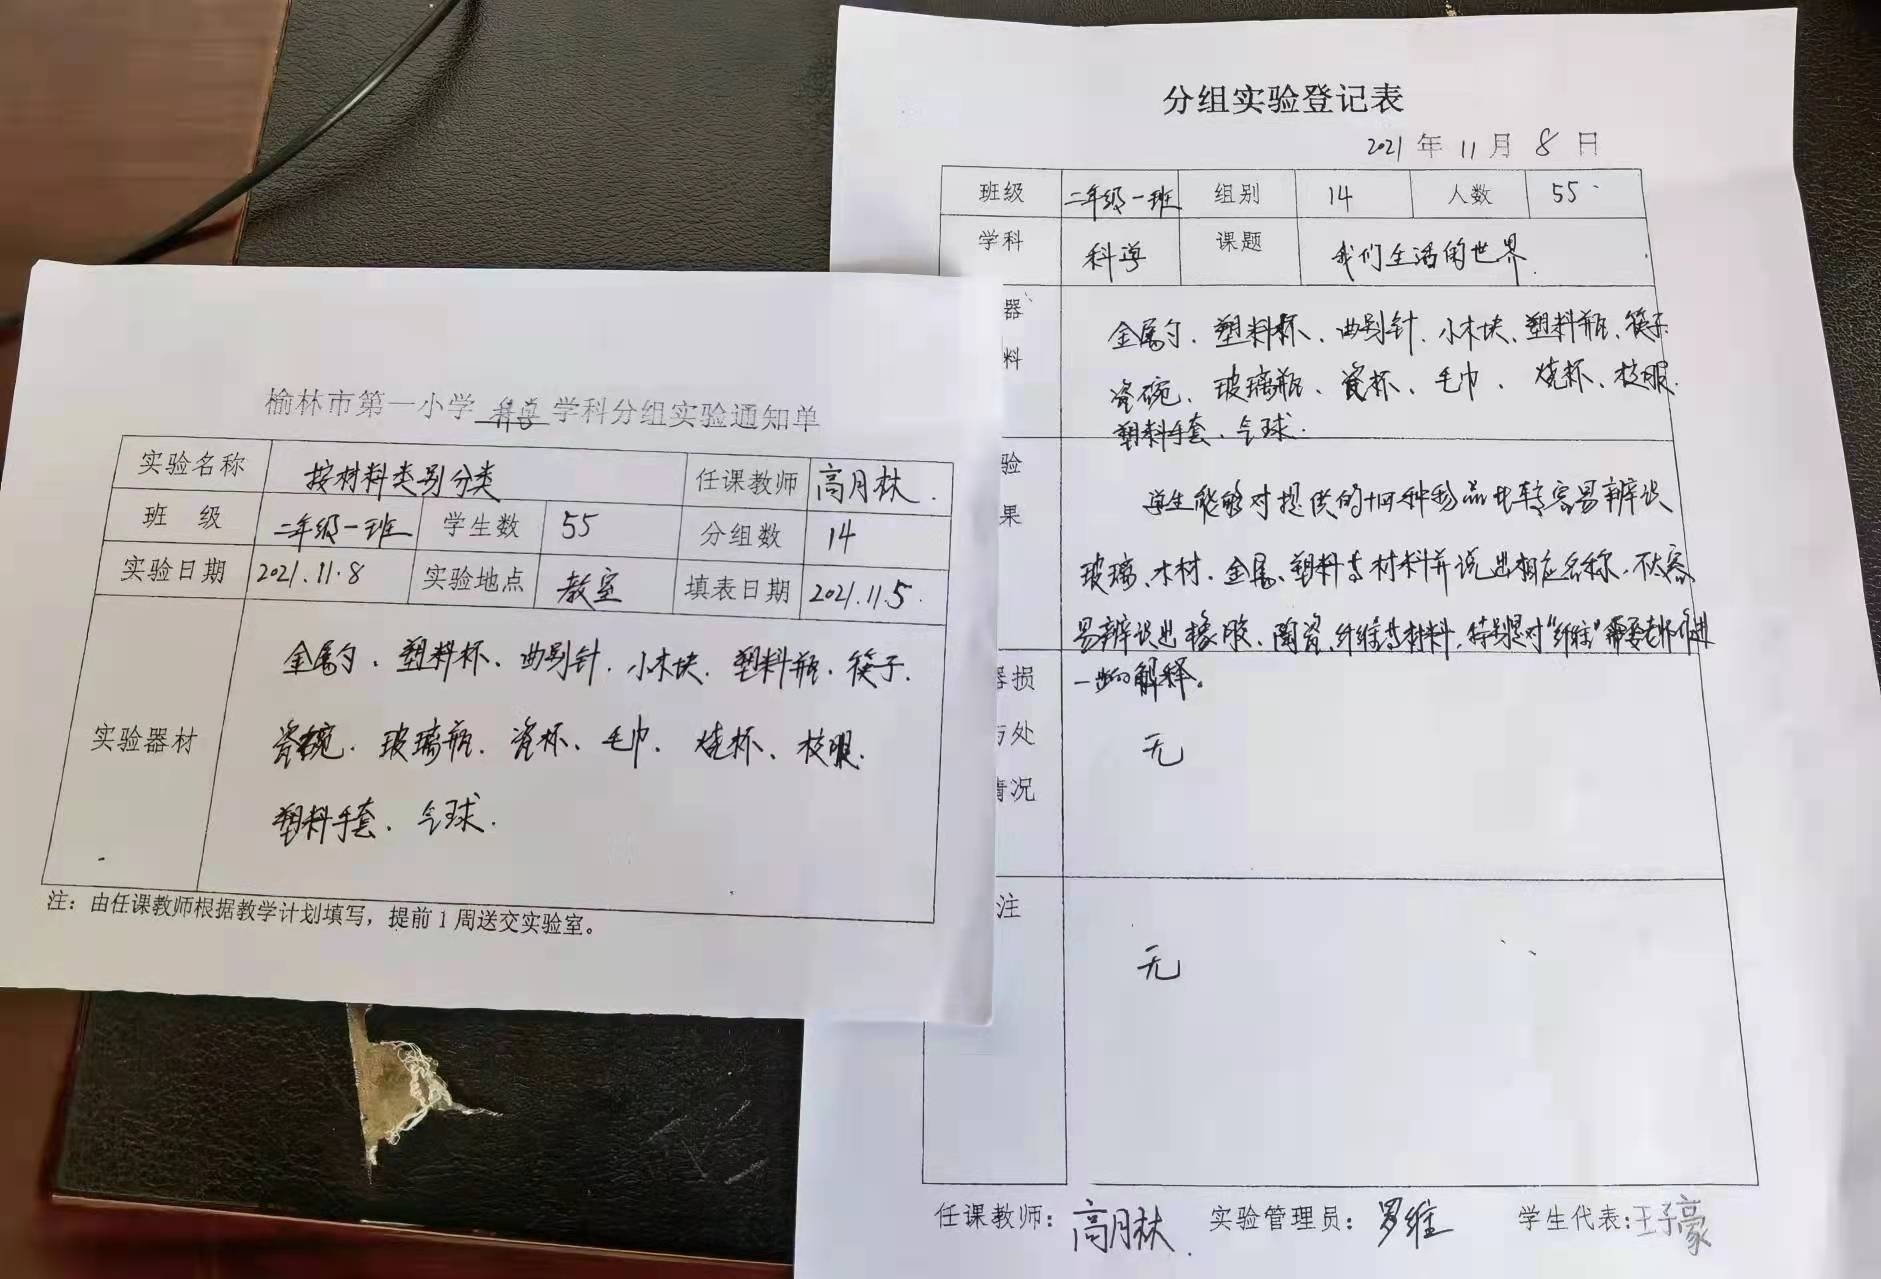 榆林市第一小学 科学 学科分组实验通知单
实验名称 按材料类别分类 任课教师 高月林.
班 级 二年级一班 学生数 55 分组数 14
实验日期 2021.11.8 实验地点 教室 填表日期 2021.11.5.
实验器材
金属勺、塑料杯、曲别针、小木块、塑料瓶、筷子、
瓷碗、玻璃瓶、瓷杯、毛巾、烧杯、校服、
塑料手套、气球.
注：由任课教师根据教学计划填写，提前1周送交实验室。
分组实验登记表
2021 年 11 月 8 日
班级 二年级一班 组别 14 人数 55
学科 科学 课题 我们生活的世界.
器
料
金属勺、塑料杯、曲别针、小木块、塑料瓶、筷子
瓷碗、玻璃瓶、瓷杯、毛巾、烧杯、校服.
塑料手套、气球.
验
果
学生能够对提供的十四种物品比较容易辨识
玻璃、木材、金属、塑料等材料并说出相应名称,不太容
易辨识出橡胶、陶瓷、纤维等材料,特别是对“纤维”需要老师作进
一步的解释。
器损
与处
情况
无
注
无
任课教师：高月林. 实验管理员：罗维 学生代表:王子豪